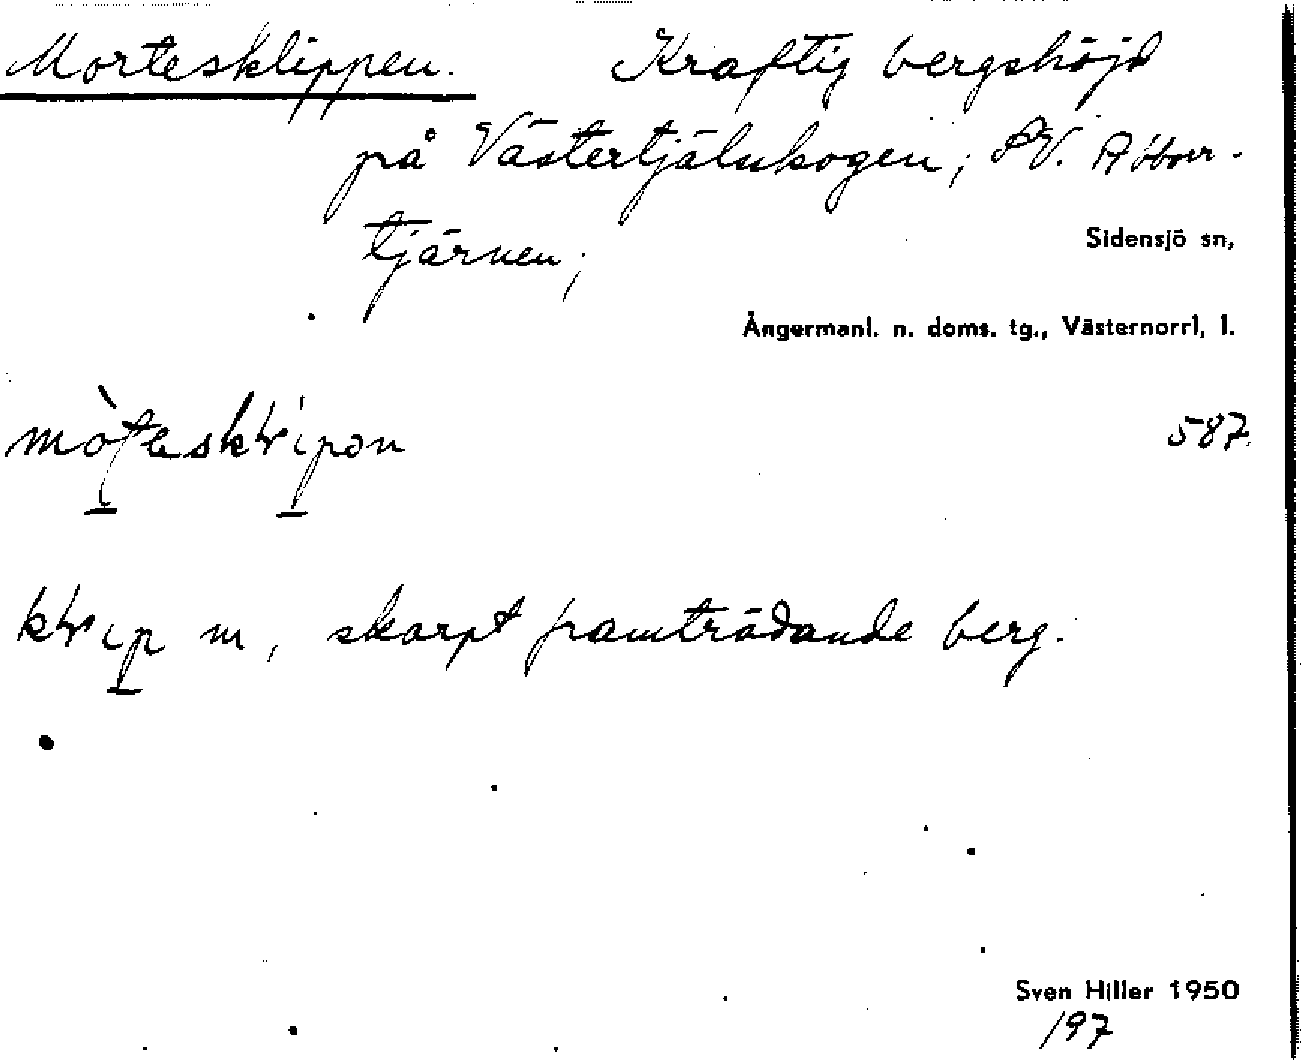 Mortesklippen. Kraftig bergshöjd
på Västertjälsskogen; SV. Abborr-
tjärnen;
Sidensjö sn,
Ångermanl. n. doms. tg., Västernorrl. l.
587.
m, skarpt framträdande berg.
Sven Hiller 1950
197